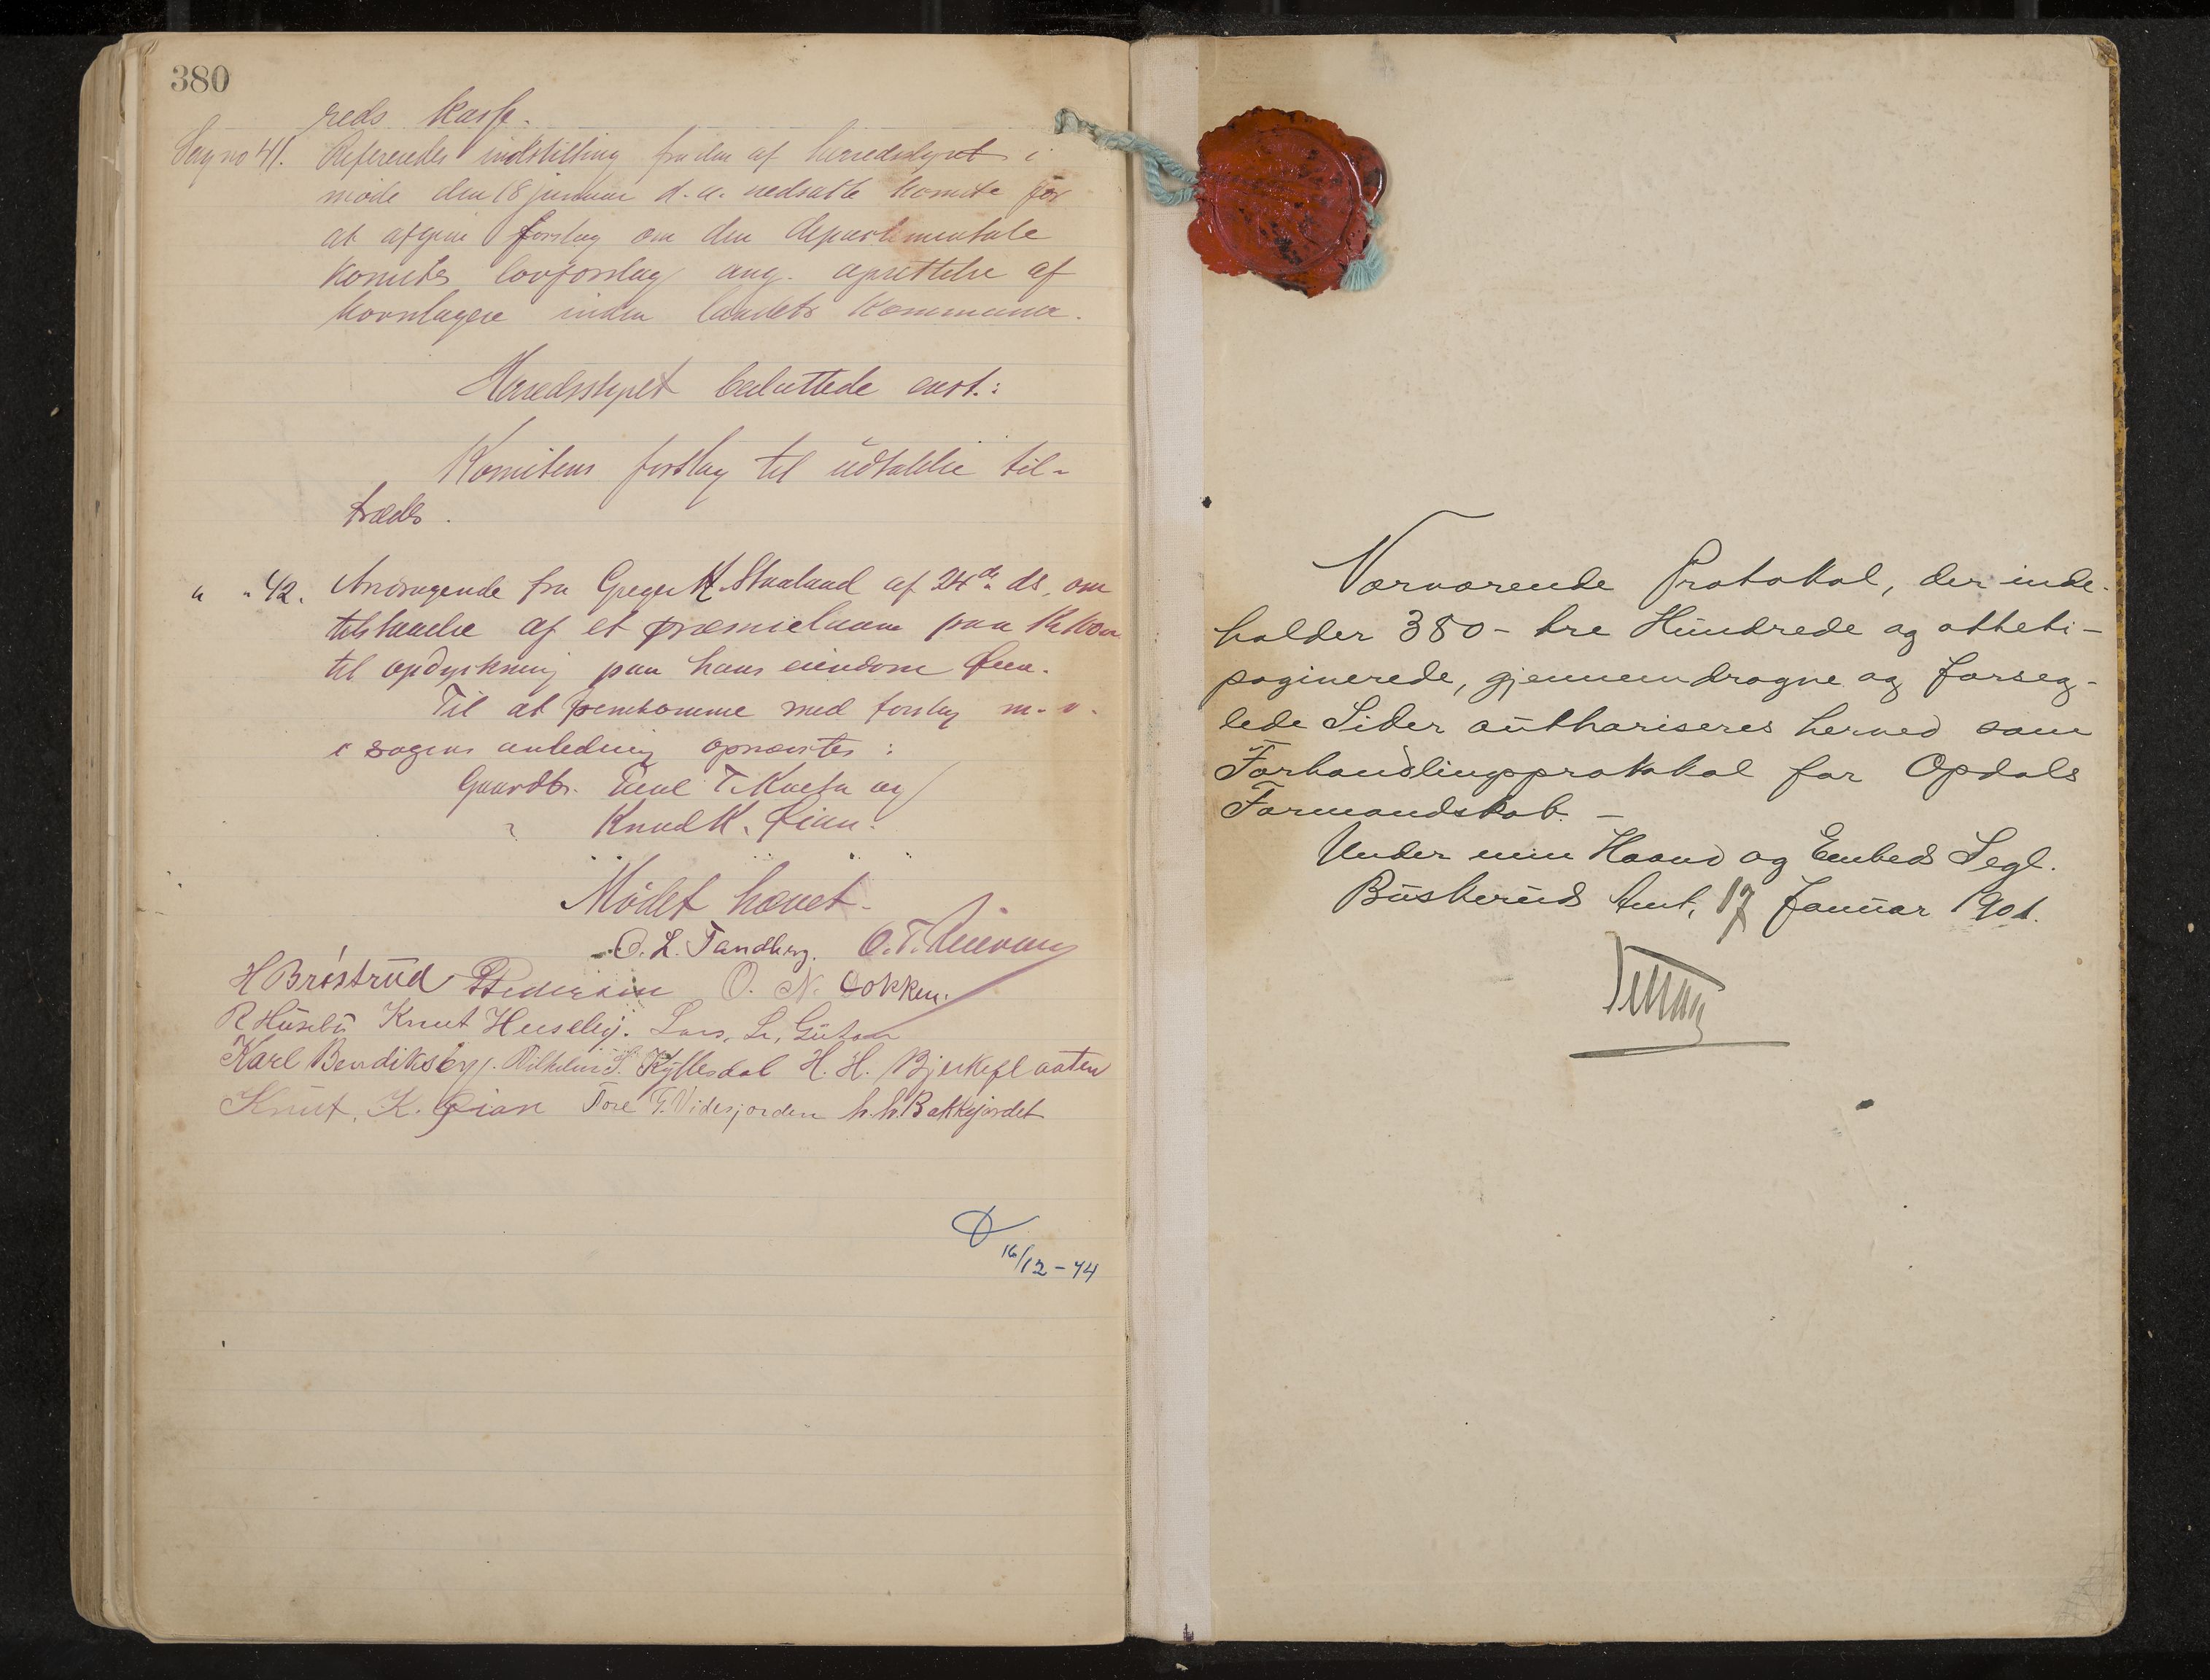 380
reds kasse.
Sag no 41. Refereredes indstilling fra den af herredsstyret i
møde den 18 januar d. a. nedsatte komite for
at afgive forslag om den departementale
komites lovforslag ang. oprettelse af
kornlagere inden landets kommuner.
Herredsstyret besluttede enst.:
Komiteens forslag til udtalelse til-
trædes.
" " 42. Andragende fra Greger K. Skaaland af 24de ds. om
tilstaaelse af et præmielaan paa Kr
til opdyrkning paa hans eiendom
Til at fremkomme med forslag m. v.
i sagens anledning opnævntes:
Gaardbr. T. og
" Knud K. Øian.
Mødet hævet.
O. L. Tandberg. O. T.
H Brøstrud Pedersen O. N. Cokken.
R Huseby Knut Huseby. Lars. L.
Karl Bendiksby. Vilhelm S. H. H. Bjerkeflaaten
Knut. K. Øian Tore T. Vidsjorden h. h. Bakkejordet
16/12-44
Nærværende Protokol, der inde-
holder 380 - tre Hundrede og otteti -
paginerede, gjennemdragne og forseg-
lede Sider authoriseres herved som
Forhandlingsprotokol for Opdals
Formandskab. -
Under min Haand og Embeds Segl.
Buskeruds Amt, 17 Januar 1901.